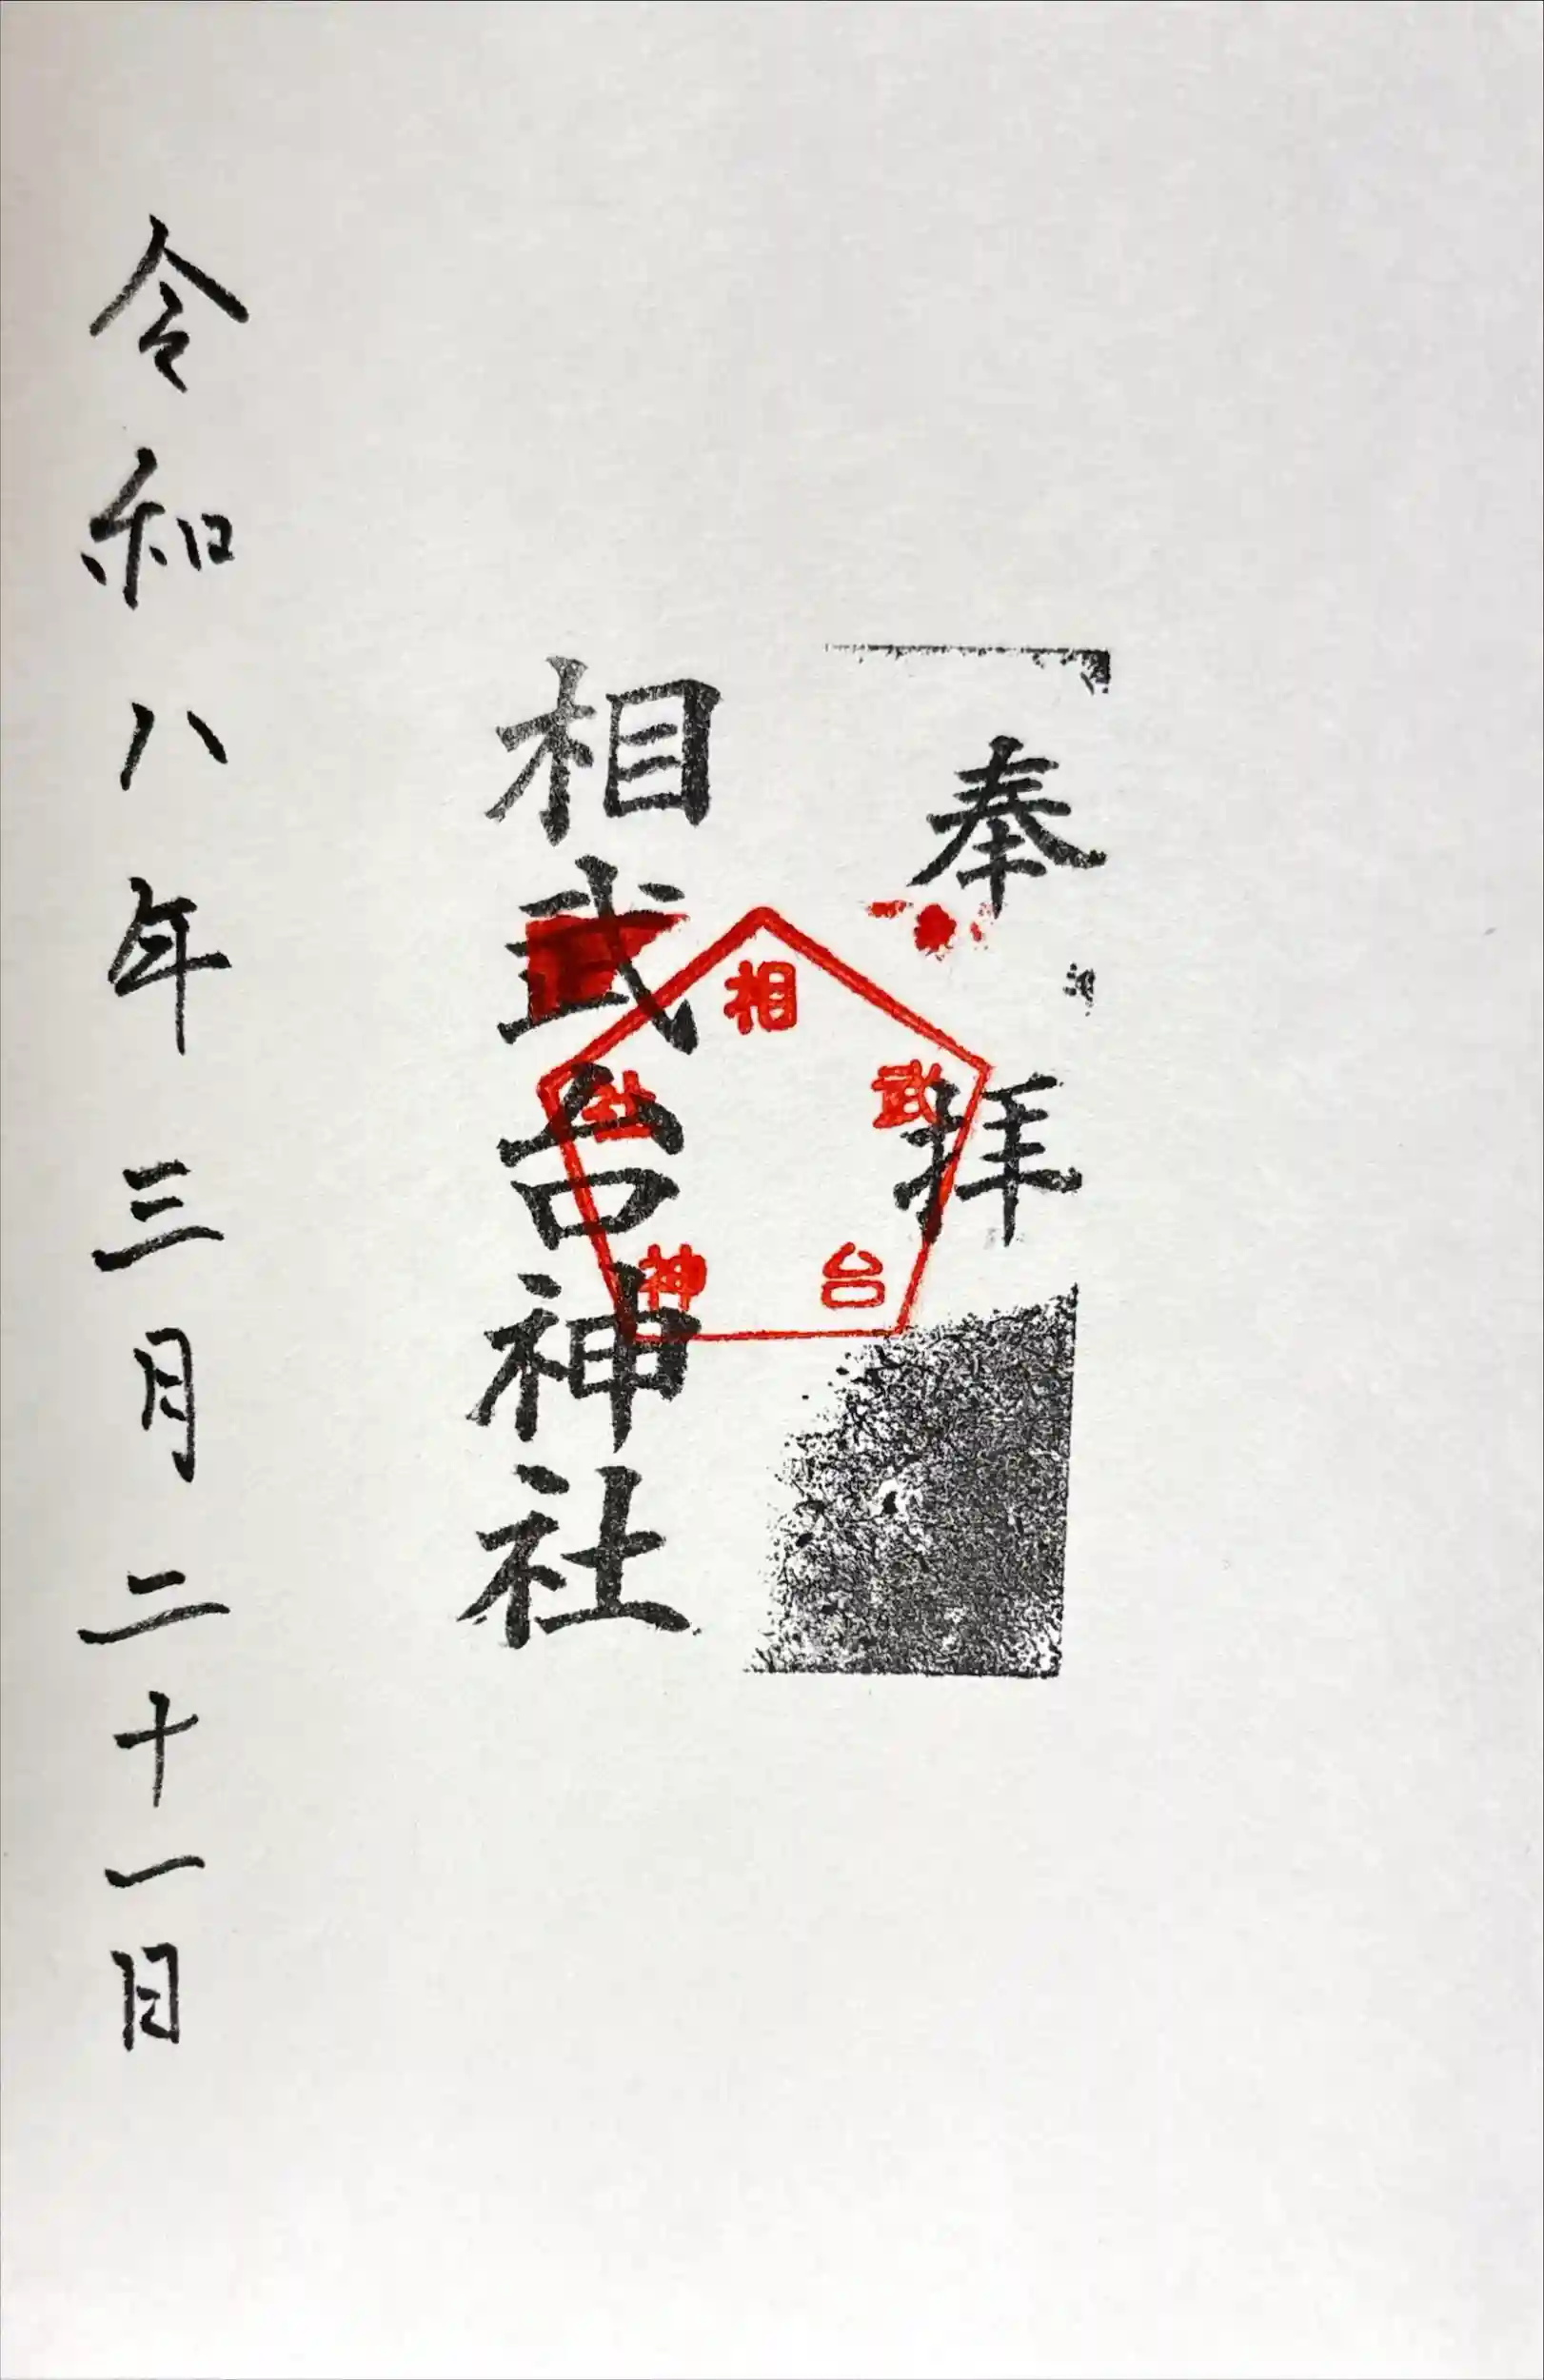 奉拝
相武台神社
相武台神社
令和八年三月二十一日